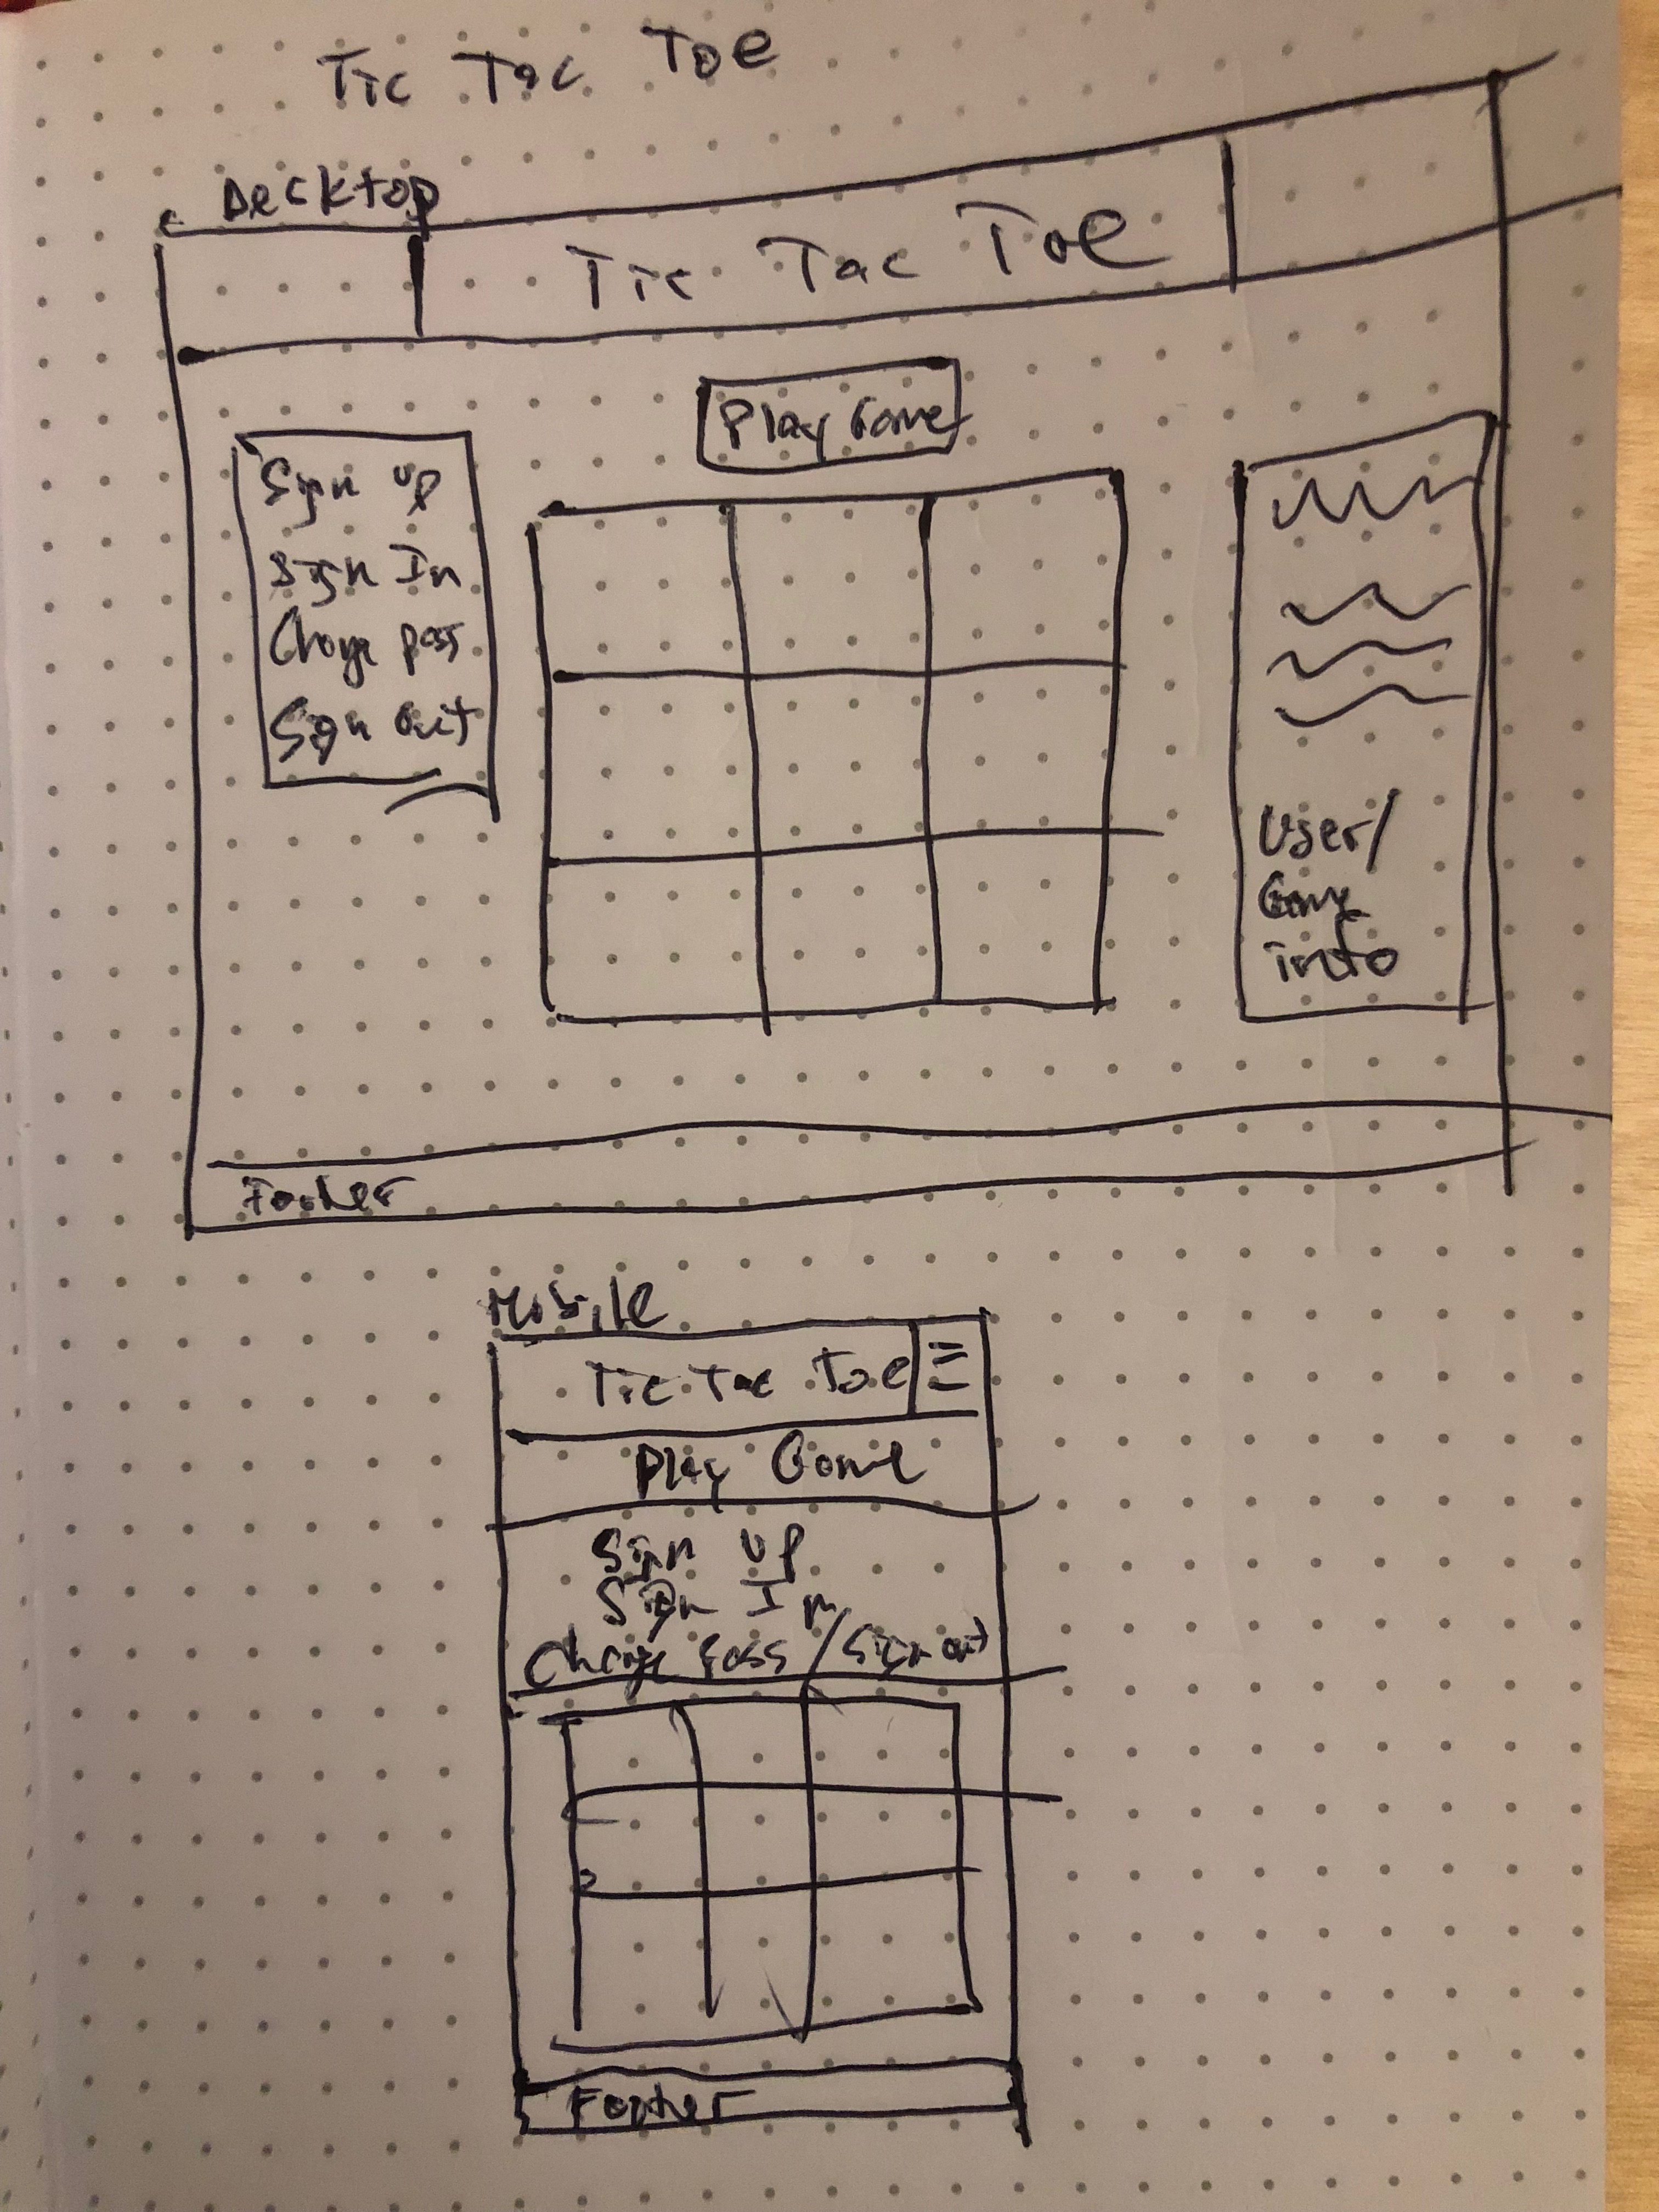 Tic Tac Toe
Decktop
Tic Tac Toe
Play Game
Sign up
Sign In
Change pass
Sign out
User/
Game
info
Footer
Mobile
Tic Tac Toe
Play Game
Sign up
Sign In
Change Pass / Sign out
Footer